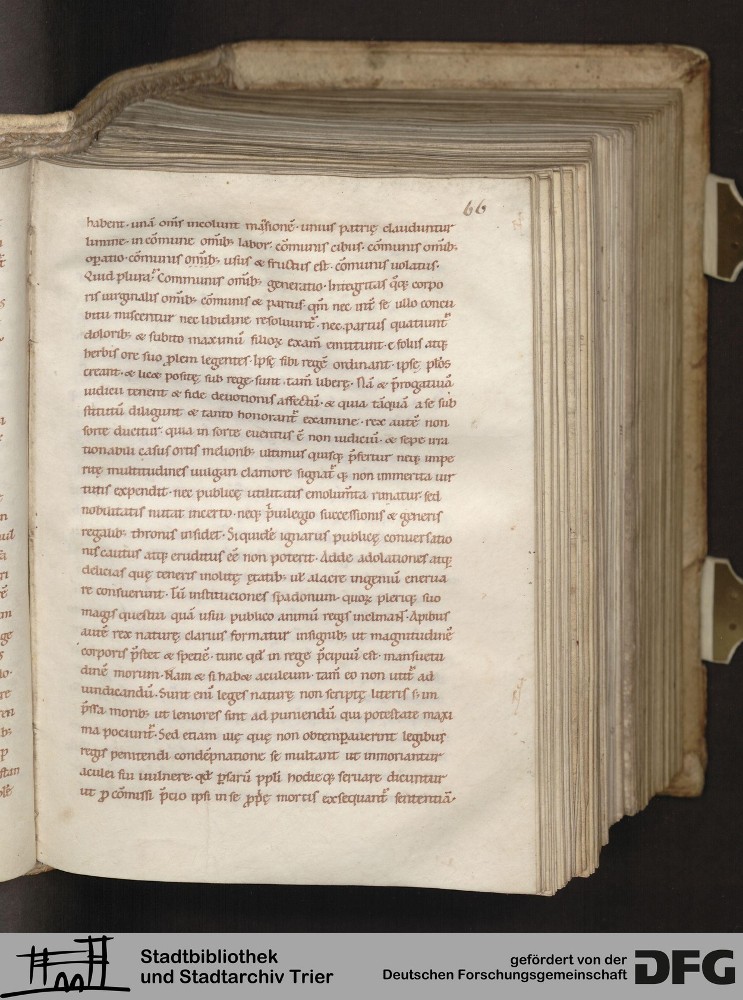 66
habent · unā om̄s incolunt mansionē · unius patrię clauduntur
limine · in cōmune om̄ib; labor · cōmunis cibus · cōmunis om̄ib;
op̄ratio · cōmunis om̄ib; usus & fructus est · cōmunis uolatus ·
Quid plura? Communis om̄ib; generatio · Integritas q̄q; corpo
ris uirginalis om̄ib; cōmunis & partus · qm̄ nec int̄ se ullo concu
bitu miscentur nec libidine resoluunt̄ · nec partus quatiunt̄
dolorib; & subito maximū filiorꝫ examē emittunt · e foliis atq;
herbis ore suo p̄lem legentes · Ipsę sibi regē ordinant · ipsę pl̄os
creant · & licet positę sub rege sunt · tam̄ liberę · Nā & p̄rogatiuā
iudicii tenent & fide deuotionis affectū · & quia tāquā a se sub
stitutū diligunt & tanto honorant̄ examine · rex autē non
sorte ducitur · quia in sorte euentus ē non iudiciū · & sepe irra
tionabili casus ortis meliorib; ultimus quisq; p̄fertur neq; impe
ritę multitudines uulgari clamore signat̄ q̄ non immerita uir
tutis expendit · nec publicę utilitatis emolum̄ta rimatur · sed
nobilitatis nutat incerto · neq; p̄uilegio successionis & generis
regalib; thronis insidet · Siquidē ignarus publicę conuersatio
nis cautus atq; eruditus eē non poterit · Adde adolationes atq;
delicias quę teneris inolitę ętatib; ul̄ alacre ingeniū enerua
re consuerunt · Tū instituciones spadonum · quorꝫ pleriq; suo
magis questui quā usui publico animū regis inclinaN̄ · Apibus
autē rex naturę clarius formatur insignib; ut magnitudinē
corporis p̄stet & speciē · tunc qd̄ in rege p̄cipuū est · mansuetu
dinē morum · Nam & si habet aculeum · tam̄ eo non utit̄ ad
uindicandū · Sunt enī leges naturę non scriptę literis s; in
p̄ssa morib; ut leniores sint ad puniendū qui potestate maxi
ma pociunt̄ · Sed etiam ulę quę non obtemp̄auerint legibus
regis penitendi condēpnatione se multant ut inmoriantur
aculei sui uulnere · qd̄ p̄sarū pp̄li hodie q; seruare dicuntur
ut p̄ cōmissi p̄cio ipsi in se p̄pę mortis exsequant̄ sententiā ·
Stadtbibliothek
und Stadtarchiv Trier
gefördert von der
Deutschen Forschungsgemeinschaft
DFG